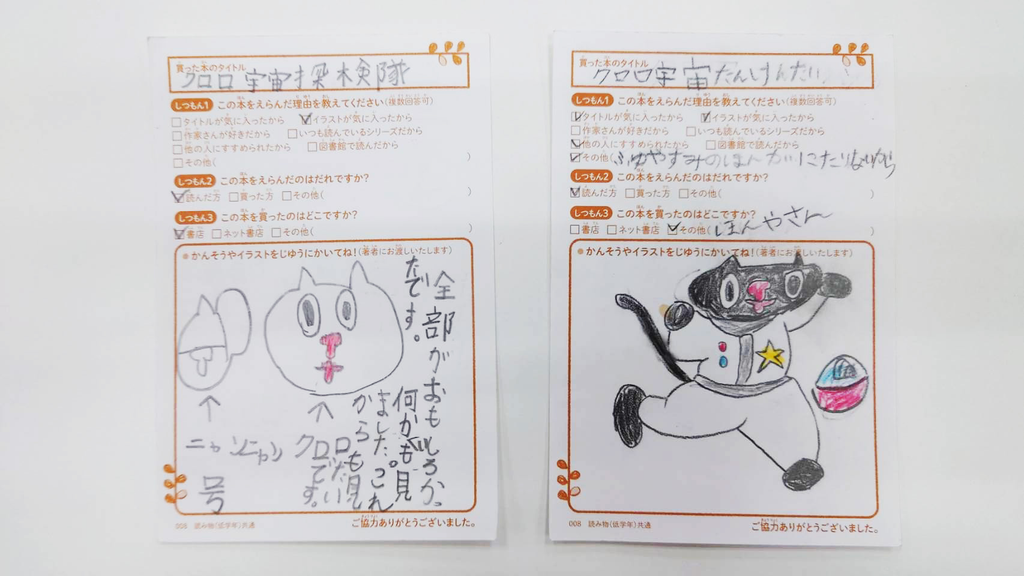 買った本のタイトル
クロロ宇宙探検隊
しつもん1 この本をえらんだ理由を教えてください(複数回答可)
□タイトルが気に入ったから ☑イラストが気に入ったから
□作家さんが好きだから □いつも読んでいるシリーズだから
□他の人にすすめられたから □図書館で読んだから
□その他( )
しつもん2 この本をえらんだのはだれですか?
☑読んだ方 □買った方 □その他( )
しつもん3 この本を買ったのはどこですか?
☑書店 □ネット書店 □その他( )
●かんそうやイラストをじゆうにかいてね!(著者にお渡しいたします)
全部がおもしろか
たです。
何かいも見
ました。これ
からも見
たいです。
クロロ
号
008 読み物(低学年)共通
ご協力ありがとうございました。
買った本のタイトル
クロロ宇宙たんけんたい
しつもん1 この本をえらんだ理由を教えてください(複数回答可)
☑タイトルが気に入ったから ☑イラストが気に入ったから
□作家さんが好きだから □いつも読んでいるシリーズだから
☑他の人にすすめられたから □図書館で読んだから
☑その他(ふゆやすみのほんが にたりないから
しつもん2 この本をえらんだのはだれですか?
☑読んだ方 □買った方 □その他( )
しつもん3 この本を買ったのはどこですか?
□書店 □ネット書店 ☑その他(ほんやさん )
●かんそうやイラストをじゆうにかいてね!(著者にお渡しいたします)
008 読み物(低学年)共通
ご協力ありがとうございました。